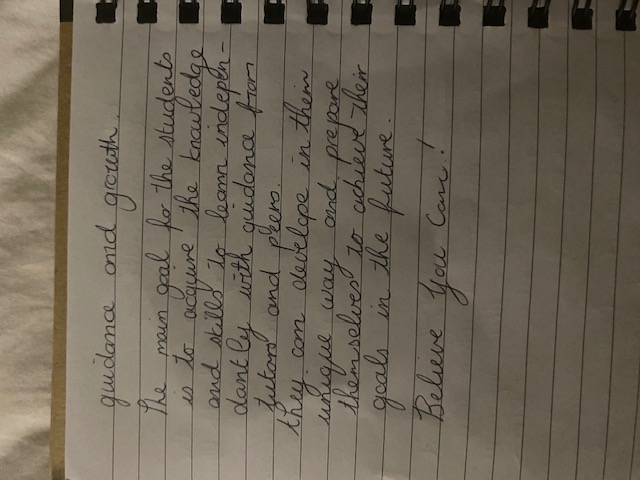 guidance and growth.
The main goal for the students
is to acquire the knowledge
and skills to learn indepen-
dantly with guidance from
tutors and peers.
they can develope in their
unique way and prepare
themselves to achieve their
goals in the future.
Believe You Can!